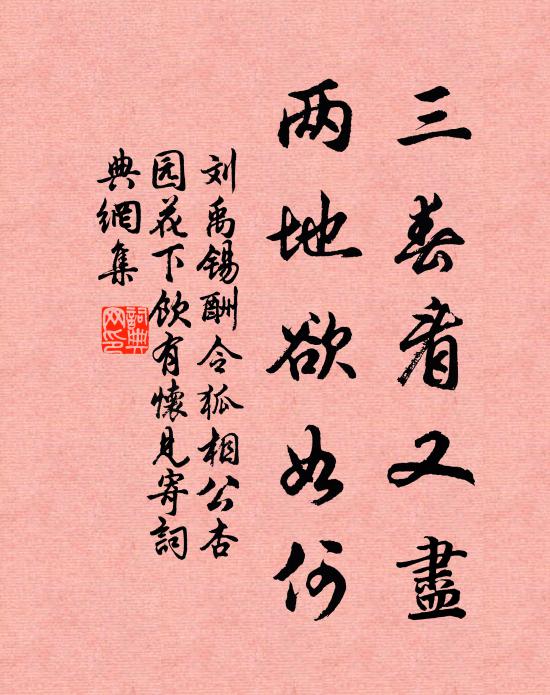 三春看又盡
两地欲如何
刘禹锡酬令狐相公杏
园花下飲有懷見寄詞
典網集
詞典網印